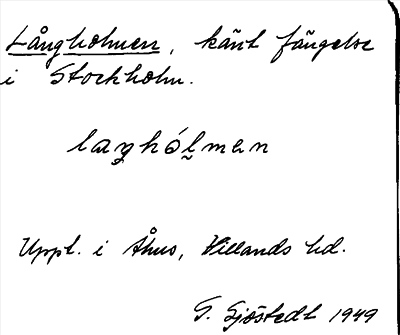 Långholmen, känt fängelse
i Stockholm.
laŋhólmen
Uppt. i Åhus, Villands hd.
G. Sjöstedt 1949